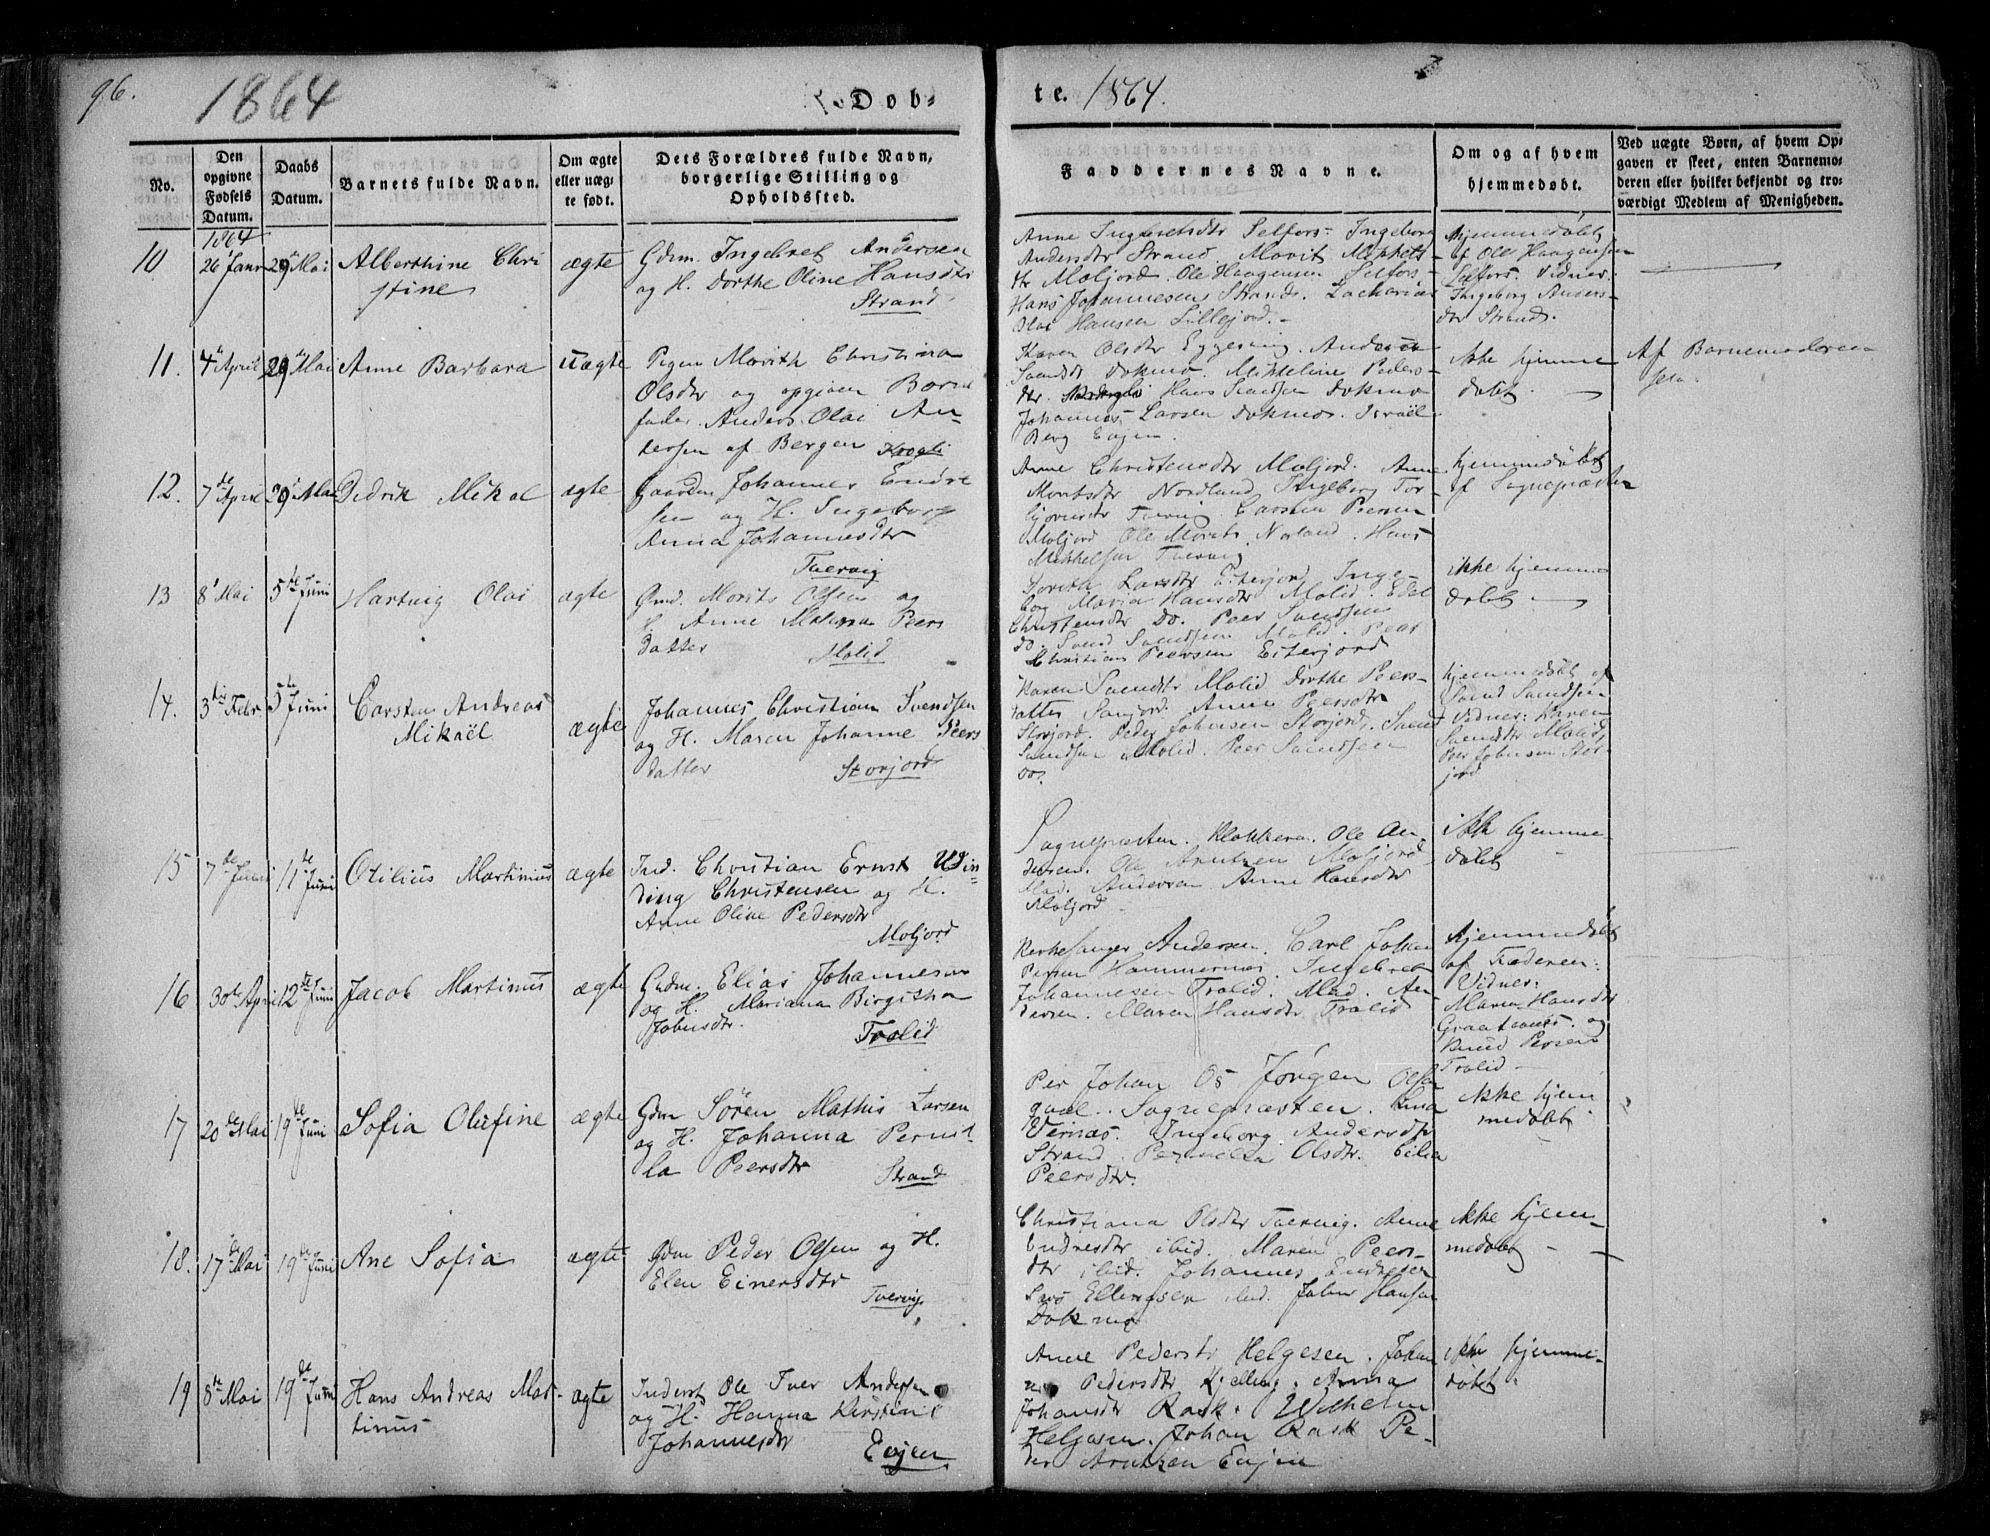 96.
1864
Døb-
te. 1864.
No.
Den opgivne Fødsels Datum.
Daabs Datum.
Barnets fulde Navn.
Om ægte eller uægte født.
Dets Forældres fulde Navn, borgerlige Stilling og Opholdssted.
Faddernes Navne.
Om og af hvem hjemmedøbt.
Ved uægte Børn, af hvem Opgaven er skeet, enten Barnemoderen eller hvilket bekjendt og troværdigt Medlem af Menigheden.
1864
10 26 Janr 29 Mai Alberthine Chri
stine
ægte
Gdm. Ingebret Andersen
og H. Dorthe Oline Hansdtr
Strand
Anne Ingebretsdtr Selfors. Ingeborg
Andersdtr Strand Marit Mikkels-
dtr Moljord. Ole Haagensen Selfors-
Hans Johannesens Strand. Zacharias
Olai Hansen Lillejord. -
hjemmedøbt
af Ole Haagensen
Selfors. Vidner
Ingeborg Anders-
dtr Strand.
11. 4 April 29 Mai Anne Barbara
uægte
Pigen Marith Christina
Olsdtr og opgiven Barne
fader. Anders Olai An
dersen af Bergen
Karen Olsdtr
Svendsdtr Dokmo. Mikkeline Peders-
dtr. Hans Svendsen Dokmo
Johannes Larsen Dokmo. Israël
Berg Evjen.
ikke hjemme
døbt. -
Af Barnemoderen
selv.
12. 7de April 29 Mai Didrik Mikal
ægte
Gaardm Johannes Endre
sen og H. Ingeborg
Anna Johannesdtr
Tvervig
Anne Christensdtr Moljord. Ane
Moritsdtr Nordland Ingeborg Tor-
bjørnsdtr Tvervig. Carsten Peersen
Moljord Ole Morits. Norland. Hans
Mikkelsen Tvervig
hjemmedøbt
af Sognepræsten
13 8 Mai 5te Juni Hartvig Olai
ægte
Gmd. Morits Olsen og
H. Anne Peers
datter
Molid
Larsdtr Eiterjord Inge-
borg Maria Hansdtr Molid. Edel
Christensdtr Do. Peer Svendsen
do Svend Svendsen Molid. Peer
Christian Peersen Eiterjord
ikke hjemme
døbt -
14. 3die Febr. 5te Juni Carsten Andreas
Mikaël
ægte
Johannes Christian Svendsen
og H. Maren Johanne Peers
datter
Storjord
Karen Svendsdtr Molid Dorthe Peers-
datter Anne Peersdtr
Storjord. Peder Johnsen Storjord. Svend
Svendsen Molid. Peer Svendsen
do.
hjemmedøbt af
Svend Svendsen
Vidner: Karen
Svendsdtr Molid,
Peer Johnsen Stor-
jord
15 7de Juni 11te Juni Otilius Martinus
ægte
Ind. Christian Ernst Udin-
ding Christensen og H.
Anne Oline Pedersdtr
Moljord
Sognepræsten. Klokkeren. Ole An-
dersen. Ole Arntzen Moljord
Mad. Andersen Anne Hansdtr
Moljord
ikke hjemme-
døbt -
16 30te April 12te Juni Jacob Martinus
ægte
Gudm. Elias Johannesen
og H. Mariana Birgitha
Johnsdtr.
Tralid
Kirkesanger Andersen. Carl Johan
Persen Hammernæs. Ingebret
Johannesen Tralid. Mad. An-
dersen. Maren Hansdtr Tralid
hjemmedøbt
af Faderen:
Vidner:
Maren Hansdtr
og
Knud Persen
Tralid -
17 20de Mai 19de Juni Sofia Olufine
ægte
Gdm Sören Mathis Larsen
og H. Johanna Pernil
la Peersdtr
Strand
Per Johan Os Jörgen Olsen
Sognepræsten.
Ingeborg Andersdtr
Strand. Pernilla Olsdtr.
Peersdtr.
ikke hjem
medøbt
18. 17de Mai 19de Juni Ane Sofia
ægte
Gdm Peder Olsen og H.
Elen Einersdtr
Tvervig
Christiana Olsdtr Tvervig. Anne
Endresdtr ibid. Maren Peers-
dtr ibid. Johannes Endresen
Ellingsen ibid. Johns Hansen
Dokmo
ikke hjem-
medøbt -
19 8de Mai 19de Juni Hans Andreas Mar-
tinus
ægte
Inderst Ole Tver Andersen
og H. Hanna Kirstine
Johannesdtr
Evjen
Anne Pedersdtr Helgesen. Johan
ne Pedersdtr Kjelling. Anna
Johansdtr Rask. Wilhelm
Helgesen. Johan Rask Pe-
der Arntzen Evjen
ikke hjemme-
døbt.